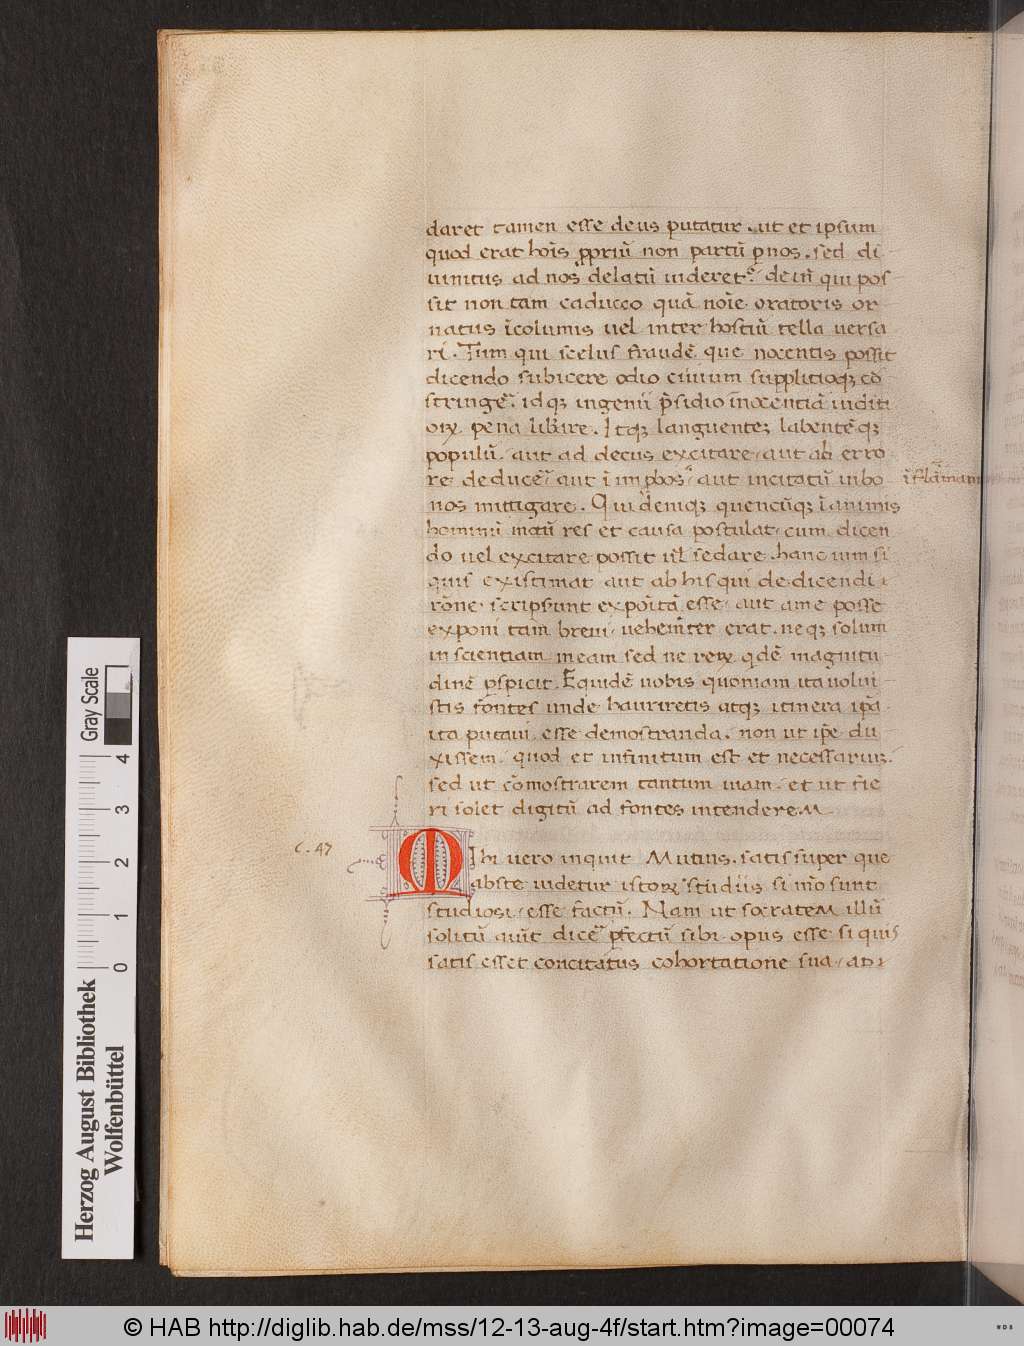 daret tamen esse deus putatur. ut et ipsum
quod erat hoīs ꝓpriū non partū ꝑ nos. sed di
uinitus ad nos delatū uideret. deīn qui pos
sit non tam caduceo quā noīe oratoris or
natus īcolumis uel inter hostiū tella uersa
ri. Tum qui scelus fraudē que nocentis possit
dicendo subicere odio ciuium supplitioqꝫ cō
stringē. idqꝫ ingenii p̄sidio īnocentiā iuditi
oꝝ pena lib̄are. Itqꝫ languenteꝫ labentēqꝫ
populū. aut ad decus excitare. aut ab erro
re deducē. aut ī imꝓbos. aut incitatū in bo
īflāmare
nos mittigare. Qui deniqꝫ quencūqꝫ ī animis
hominū motū res et causa postulat. cum dicen
do uel excitare possit ul̄ sedare. hanc uim si
quis existimat aut ab his qui de dicendi
rōne scripsunt expoitā esse. aut ame posse
exponi tam breui. uehemter erat. neqꝫ solum
inscientiam meam sed ne reꝝ qdē magnitu
dinē ꝑspicit. Equidē uobis quoniam ita uolui
stis fontes unde hauriretis atqꝫ itinera ipā
ita putaui esse demostranda. non ut ipe du
xissem. quod et infinitum est et necessarium.
sed ut cōmostrarem tantum uiam. et ut fie
ri solet digitū ad fontes intenderem
c. 47
MIhi uero inquit Mutius. satis super que
abste uidetur istoꝝ studiis si mō sunt
studiosi. esse factū. Nam ut socratem illū
solitū aiūt dicē ꝑfectū sibi opus esse si quis
satis esset concitatus cohortatione sua. ad
Gray Scale
4
3
2
1
0
Herzog August Bibliothek
Wolfenbüttel
© HAB http://diglib.hab.de/mss/12-13-aug-4f/start.htm?image=00074